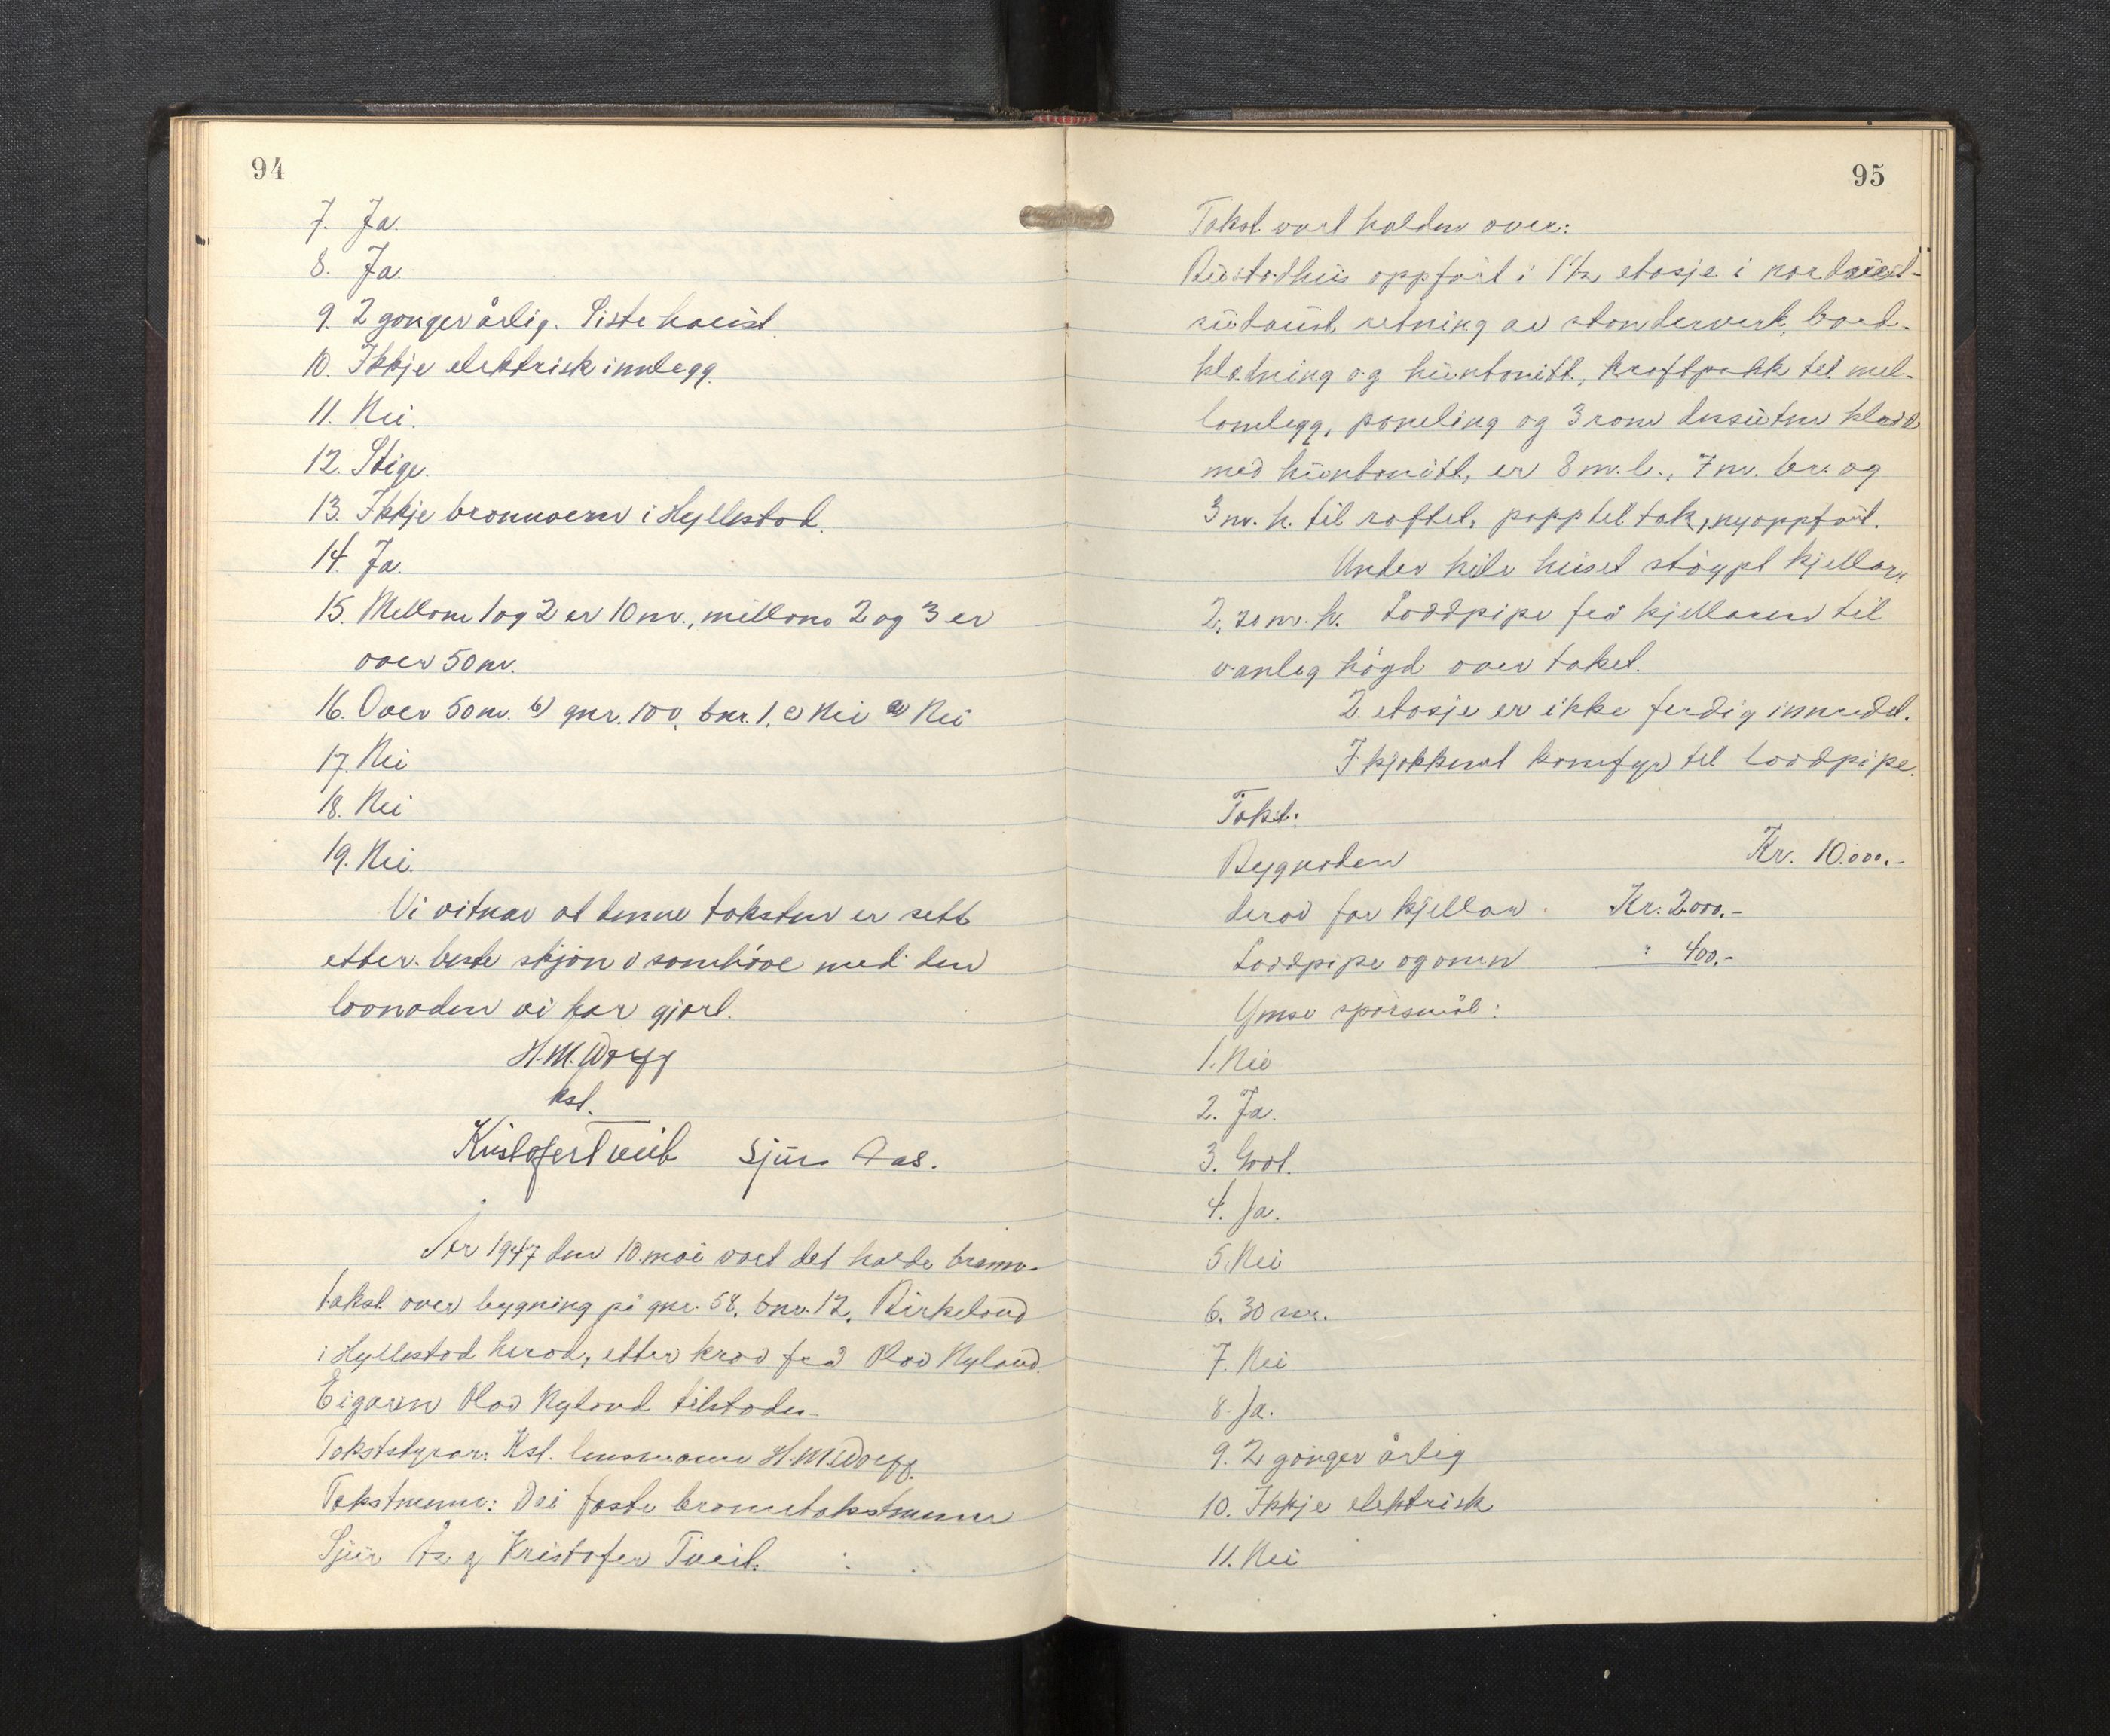 94
7. Ja.
8. Ja.
9. 2 gonger årlig. Siste haust.
10. Ikkje elektrisk innlegg.
11. Nei.
12. Stige.
13. Ikkje brannvern i Hyllestad.
14. Ja.
15. Mellom 1 og 2 er 10 m., mellom 2 og 3 er
over 50 m.
16. Over 50 m. b) gnr. 100, bnr. 1. c) Nei d) Nei
17. Nei
18. Nei
19. Nei.
Vi vitnar at denne taksten er sett
etter beste skjøn i samhøve med den
lovnaden vi har gjort.
H. M. Worff
kst.
Kristofer Tveit Sjur Aas.
År 1947 den 10. mai vart det halde brann-
takst over bygning på gnr. 58, bnr. 12, Birkeland
i Hyllestad herad, etter krav frå Olav Nyland.
Eigaren Olav Nyland tilstades.
Takststyrar: Kst. lensmann H. M. Worff.
Takstmenn: Dei faste branntakstmenn
Sjur Ås og Kristofer Tveit.
95
Takst vart halden over:
Bustadhus oppført i 1 1/2 etasje i nordaust-
sudaust retning av standerverk, bord-
kledning og huntonitt, kraftpakk til mel-
lomlegg, paneling og 3 rom dessuten kledd
med huntonitt, er 8 m. l., 7 m. br. og
3 m. h. til raftet, papp til tak, nyoppført.
Under heile huset støypt kjellar,
2,20 m. h. Loddpipe frå kjellaren til
vanleg høgd over taket.
2. etasje er ikke ferdig innredet.
I kjøkkenet komfyr til loddpipe.
Takst:
Bygnaden Kr. 10.000.-
derav for kjellar Kr. 2.000.-
Loddpipe og omn " 400.-
Ymse spørsmål:
1. Nei
2. Ja.
3. Godt.
4. Ja.
5. Nei
6. 30 m.
7. Nei
8. Ja.
9. 2 gonger årlig
10. Ikkje elektrisk
11. Nei